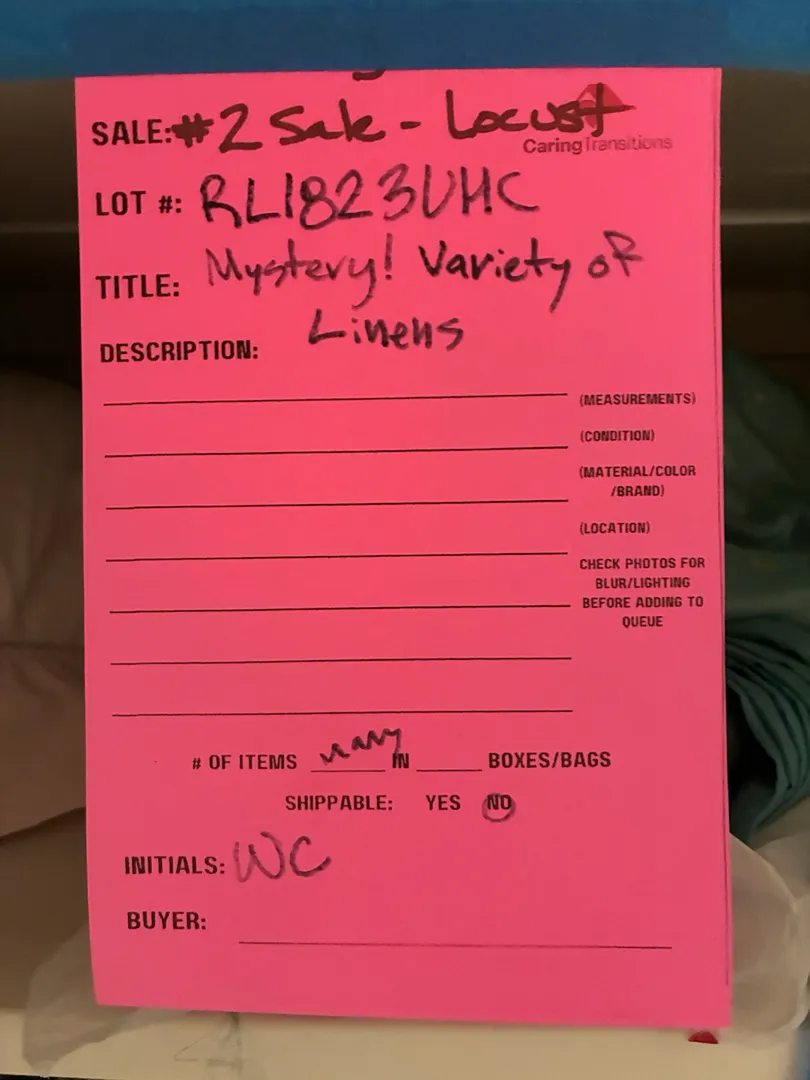 SALE: #2 Sale - Locust
CaringTransitions
LOT #: RL1823UHC
TITLE: Mystery! Variety of
Linens
DESCRIPTION:
(MEASUREMENTS)
(CONDITION)
(MATERIAL/COLOR
/BRAND)
(LOCATION)
CHECK PHOTOS FOR
BLUR/LIGHTING
BEFORE ADDING TO
QUEUE
# OF ITEMS many IN ______ BOXES/BAGS
SHIPPABLE: YES NO
INITIALS: WC
BUYER: